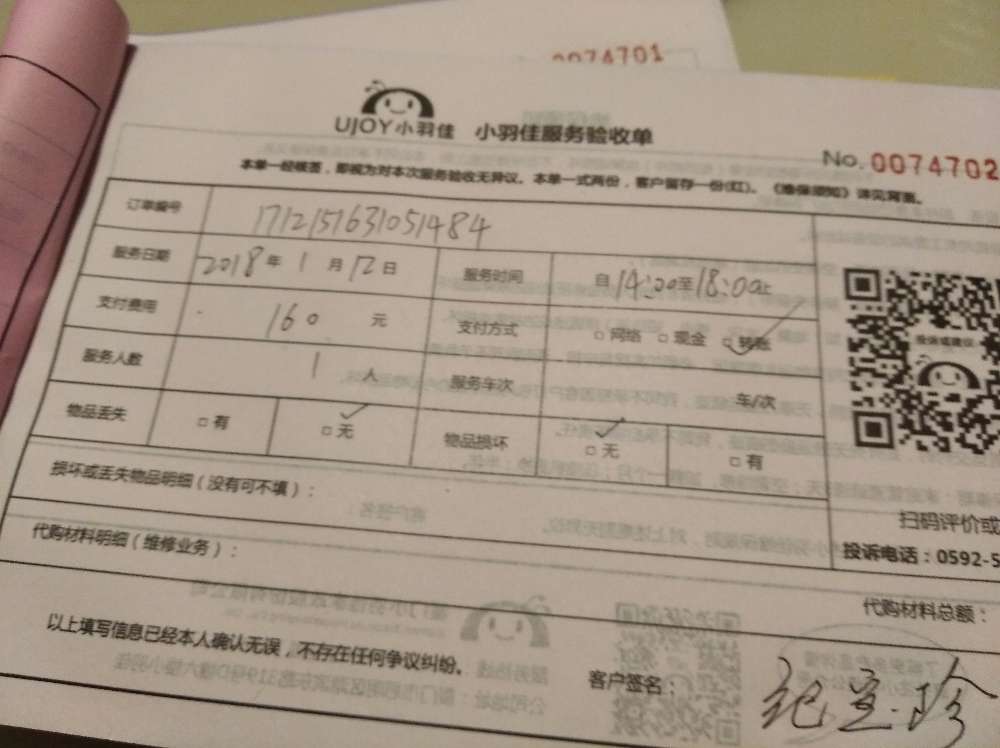 0074701
UJOY小羽佳 小羽佳服务验收单
No. 0074702
本单一经核签，即视为对本次服务验收无异议。本单一式两份，客户留存一份(红)。《维保须知》详见背面。
订单编号 1712151631051484
服务日期 2018年1月12日 服务时间 自14:00至18:00止
支付费用 160元 支付方式 □网络 □现金 □转账
投诉或建议
服务人数 1人 服务车次 车/次
物品丢失 □有 □无 物品损坏 □无 □有
损坏或丢失物品明细（没有可不填）：
扫码评价或
代购材料明细（维修业务）：
投诉电话：0592-5
代购材料总额：
以上填写信息已经本人确认无误，不存在任何争议纠纷。
客户签名：